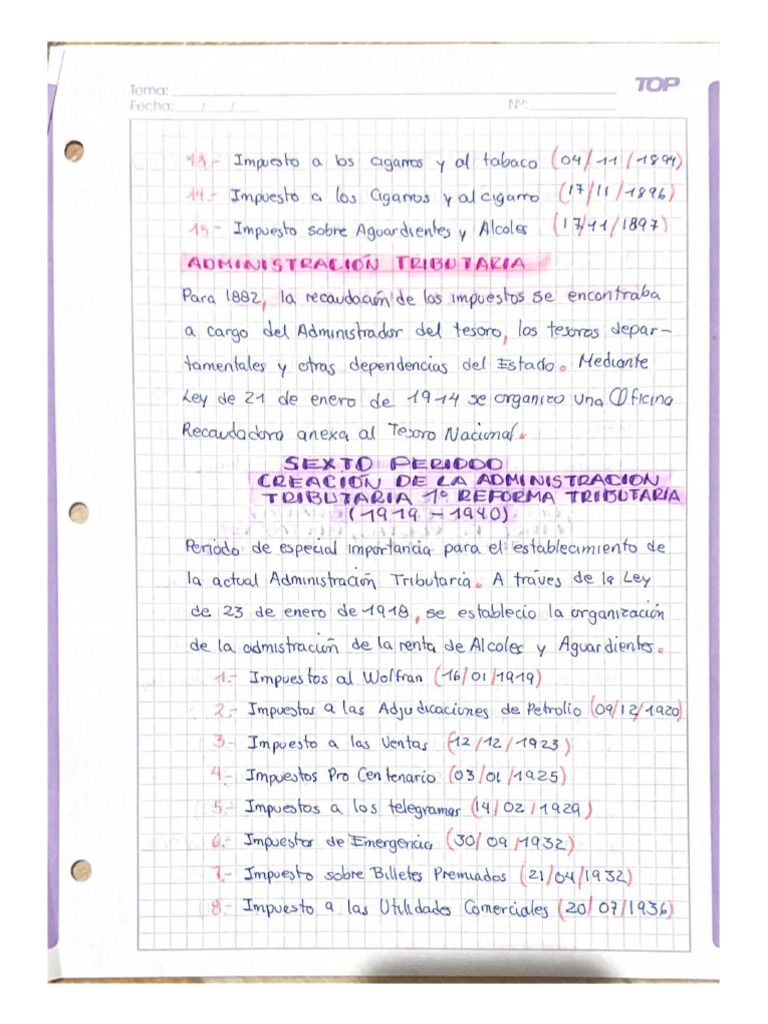 TOP
Tema:
Fecha: / / Nº:
13.- Impuesto a los cigarros y al tabaco (04/11/1894)
14.- Impuesto a los Cigarros y al cigarro (17/11/1896)
15.- Impuesto sobre Aguardientes y Alcoles (17/11/1897)
ADMINISTRACIÓN TRIBUTARIA
Para 1882, la recaudación de los impuestos se encontraba
a cargo del Administrador del tesoro, los tesoros depar-
tamentales y otras dependencias del Estado. Mediante
Ley de 21 de enero de 1914 se organizo una Oficina
Recaudadora anexa al Tesoro Nacional.
SEXTO PERIODO
CREACIÓN DE LA ADMINISTRACION
TRIBUTARIA 1º REFORMA TRIBUTARIA
(1919 - 1940)
Periodo de especial importancia para el establecimiento de
la actual Administración Tributaria. A través de la Ley
de 23 de enero de 1918, se establecio la organización
de la admistración de la renta de Alcoles y Aguardientes.
1.- Impuestos al Wolfran (16/01/1919)
2.- Impuestos a las Adjudicaciones de Petrolio (09/12/1920)
3.- Impuesto a las Ventas (12/12/1923)
4.- Impuestos Pro Centenario (03/01/1925)
5.- Impuestos a los telegramas (14/02/1929)
6.- Impuestos de Emergencia (30/09/1932)
7.- Impuesto sobre Billetes Premiados (21/04/1932)
8.- Impuesto a las Utilidades Comerciales (20/07/1936)